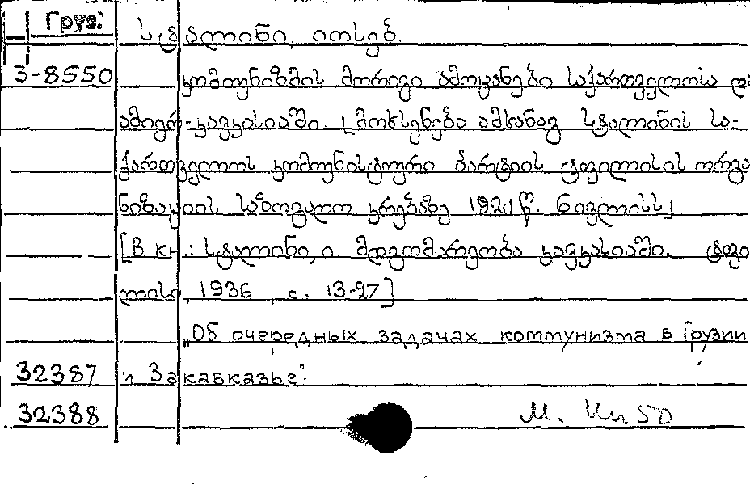 Груз.
სტალინი, იოსებ.
3-8550 კომუნიზმის მორიგი ამოცანები საქართველოსა და
ამიერ-კავკასიაში. [მოხსენება ამხანაგ სტალინის სა-
ქართველოს კომუნისტური პარტიის ტფილისის ორგა
ნიზაციის საზოგადო კრებაზე 1921 წ. ივლისს]
[В кн.: სტალინი, ი. მდგომარეობა კავკასიაში. ტფი
ლისი, 1936 с. 13-27]
„Об очередных задачах коммунизма в Грузии
32387 и Закавказье".
32388 М. Кн 50